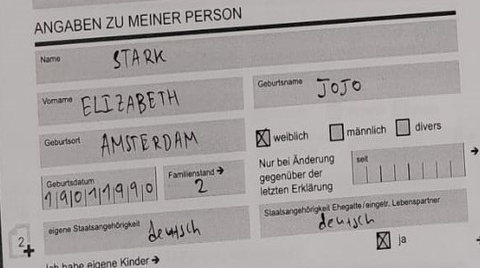 ANGABEN ZU MEINER PERSON
Name STARK
Vorname ELIZABETH
Geburtsname JOJO
Geburtsort AMSTERDAM
weiblich männlich divers
Geburtsdatum 19011990
Familienstand → 2
Nur bei Änderung
gegenüber der
letzten Erklärung
seit →
eigene Staatsangehörigkeit deutsch
Staatsangehörigkeit Ehegatte/eingetr. Lebenspartner
deutsch
2
ja
Ich habe eigene Kinder →